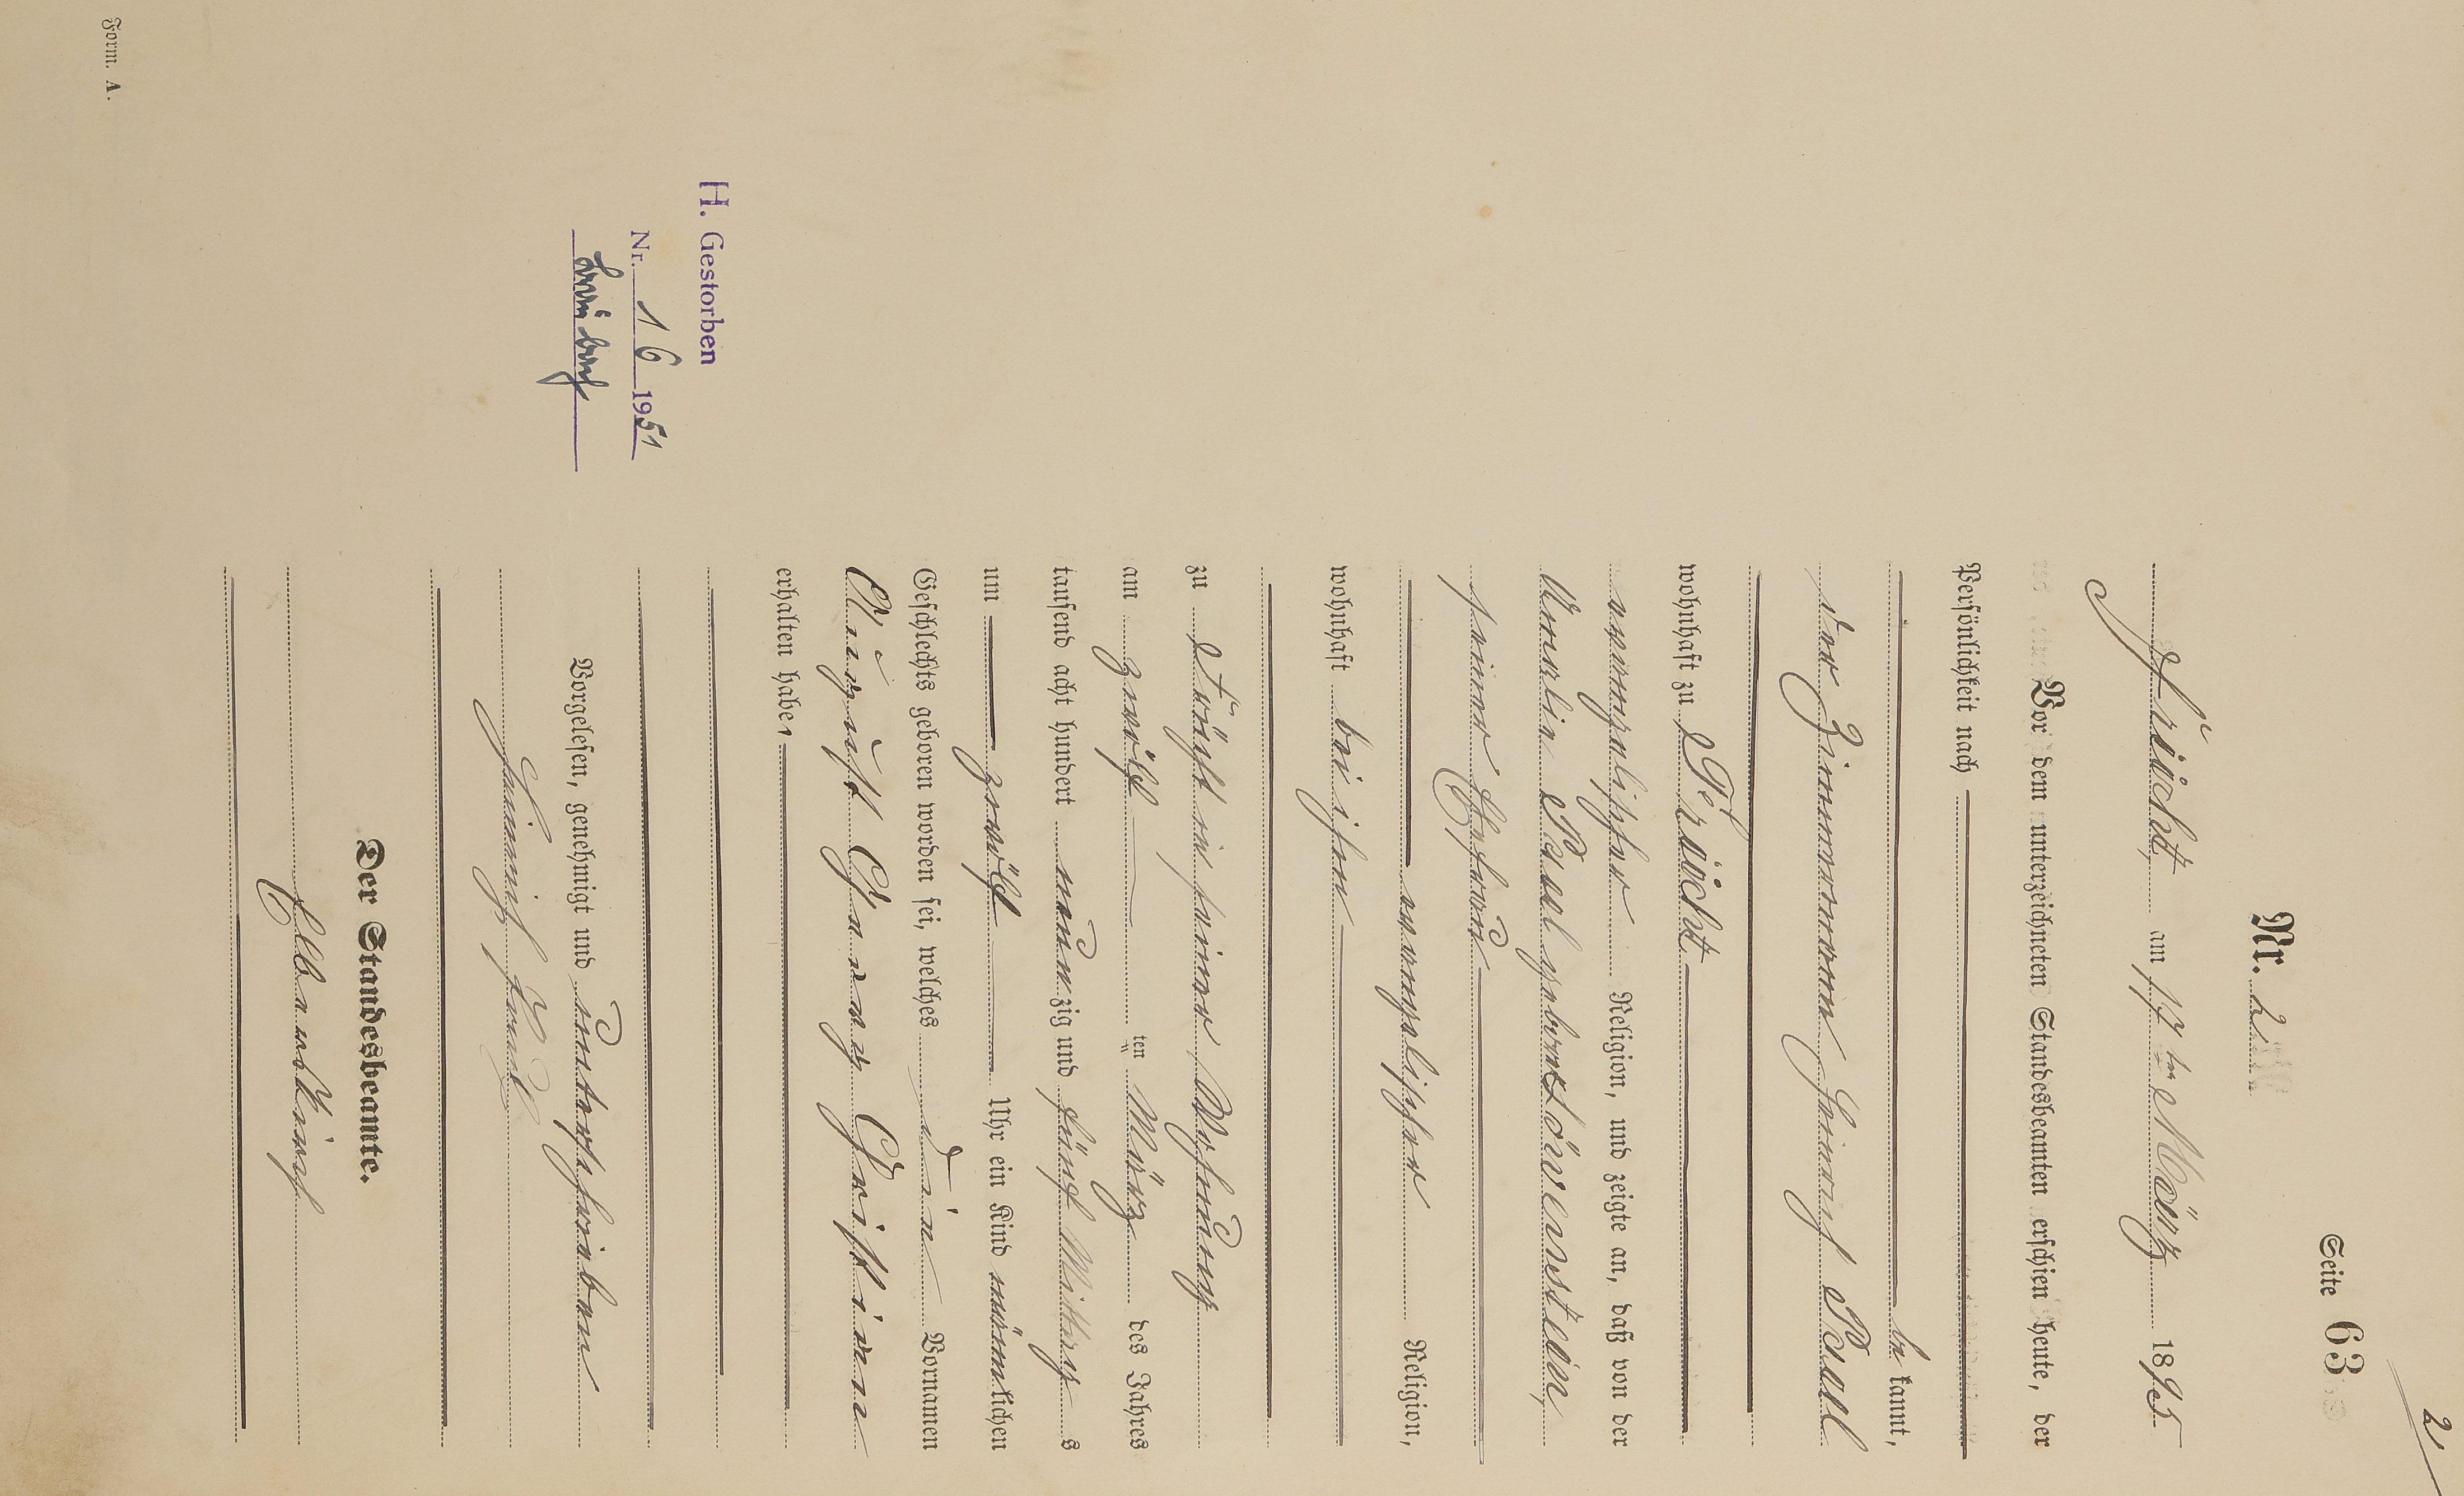 2
Seite 63
Nr. 2
Frücht, am 17ten März 1895
Vor dem unterzeichneten Standesbeamten erschien heute, der
Persönlichkeit nach
be kannt,
der Zimmermann Heinrich Paul
wohnhaft zu Frücht
evangelischer Religion, und zeigte an, daß von der
Amalie Paul geborne Löwenstein,
seiner Ehefrau
evangelischer Religion,
wohnhaft bei ihm
zu Frücht in seiner Wohnung
am zwölf ten März des Jahres
tausend acht hundert neun zig und fünf Mittags
um zwölf Uhr ein Kind männlichen
Geschlechts geboren worden sei, welches die Vornamen
August Georg Christian
erhalten habe.
Vorgelesen, genehmigt und unterschrieben
Heinrich Paul
Der Standesbeamte.
H. Gestorben
Nr. 16 1951
Braubach
Form. A.